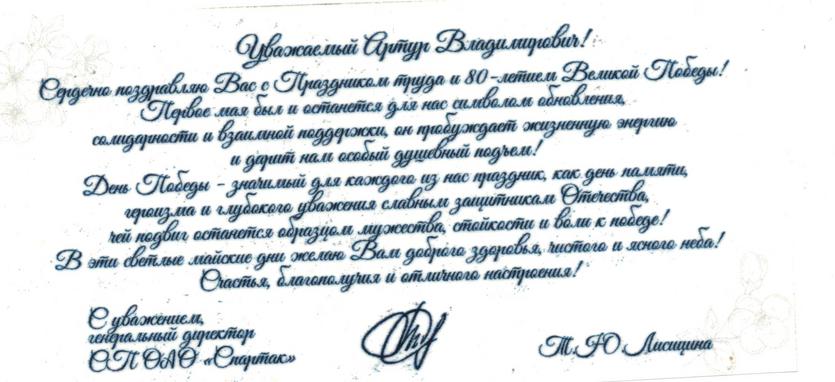 Уважаемый Артур Владимирович!
Сердечно поздравляю Вас с Праздником труда и 80-летием Великой Победы!
Первое мая был и останется для нас символом обновления,
солидарности и взаимной поддержки, он пробуждает жизненную энергию
и дарит нам особый душевный подъем!
День Победы - значимый для каждого из нас праздник, как день памяти,
героизма и глубокого уважения славным защитникам Отечества,
чей подвиг останется образцом мужества, стойкости и воли к победе!
В эти светлые майские дни желаю Вам доброго здоровья, чистого и ясного неба!
Счастья, благополучия и отличного настроения!
С уважением,
генеральный директор
СП ОАО «Спартак»
Т.Ю.Лисицина